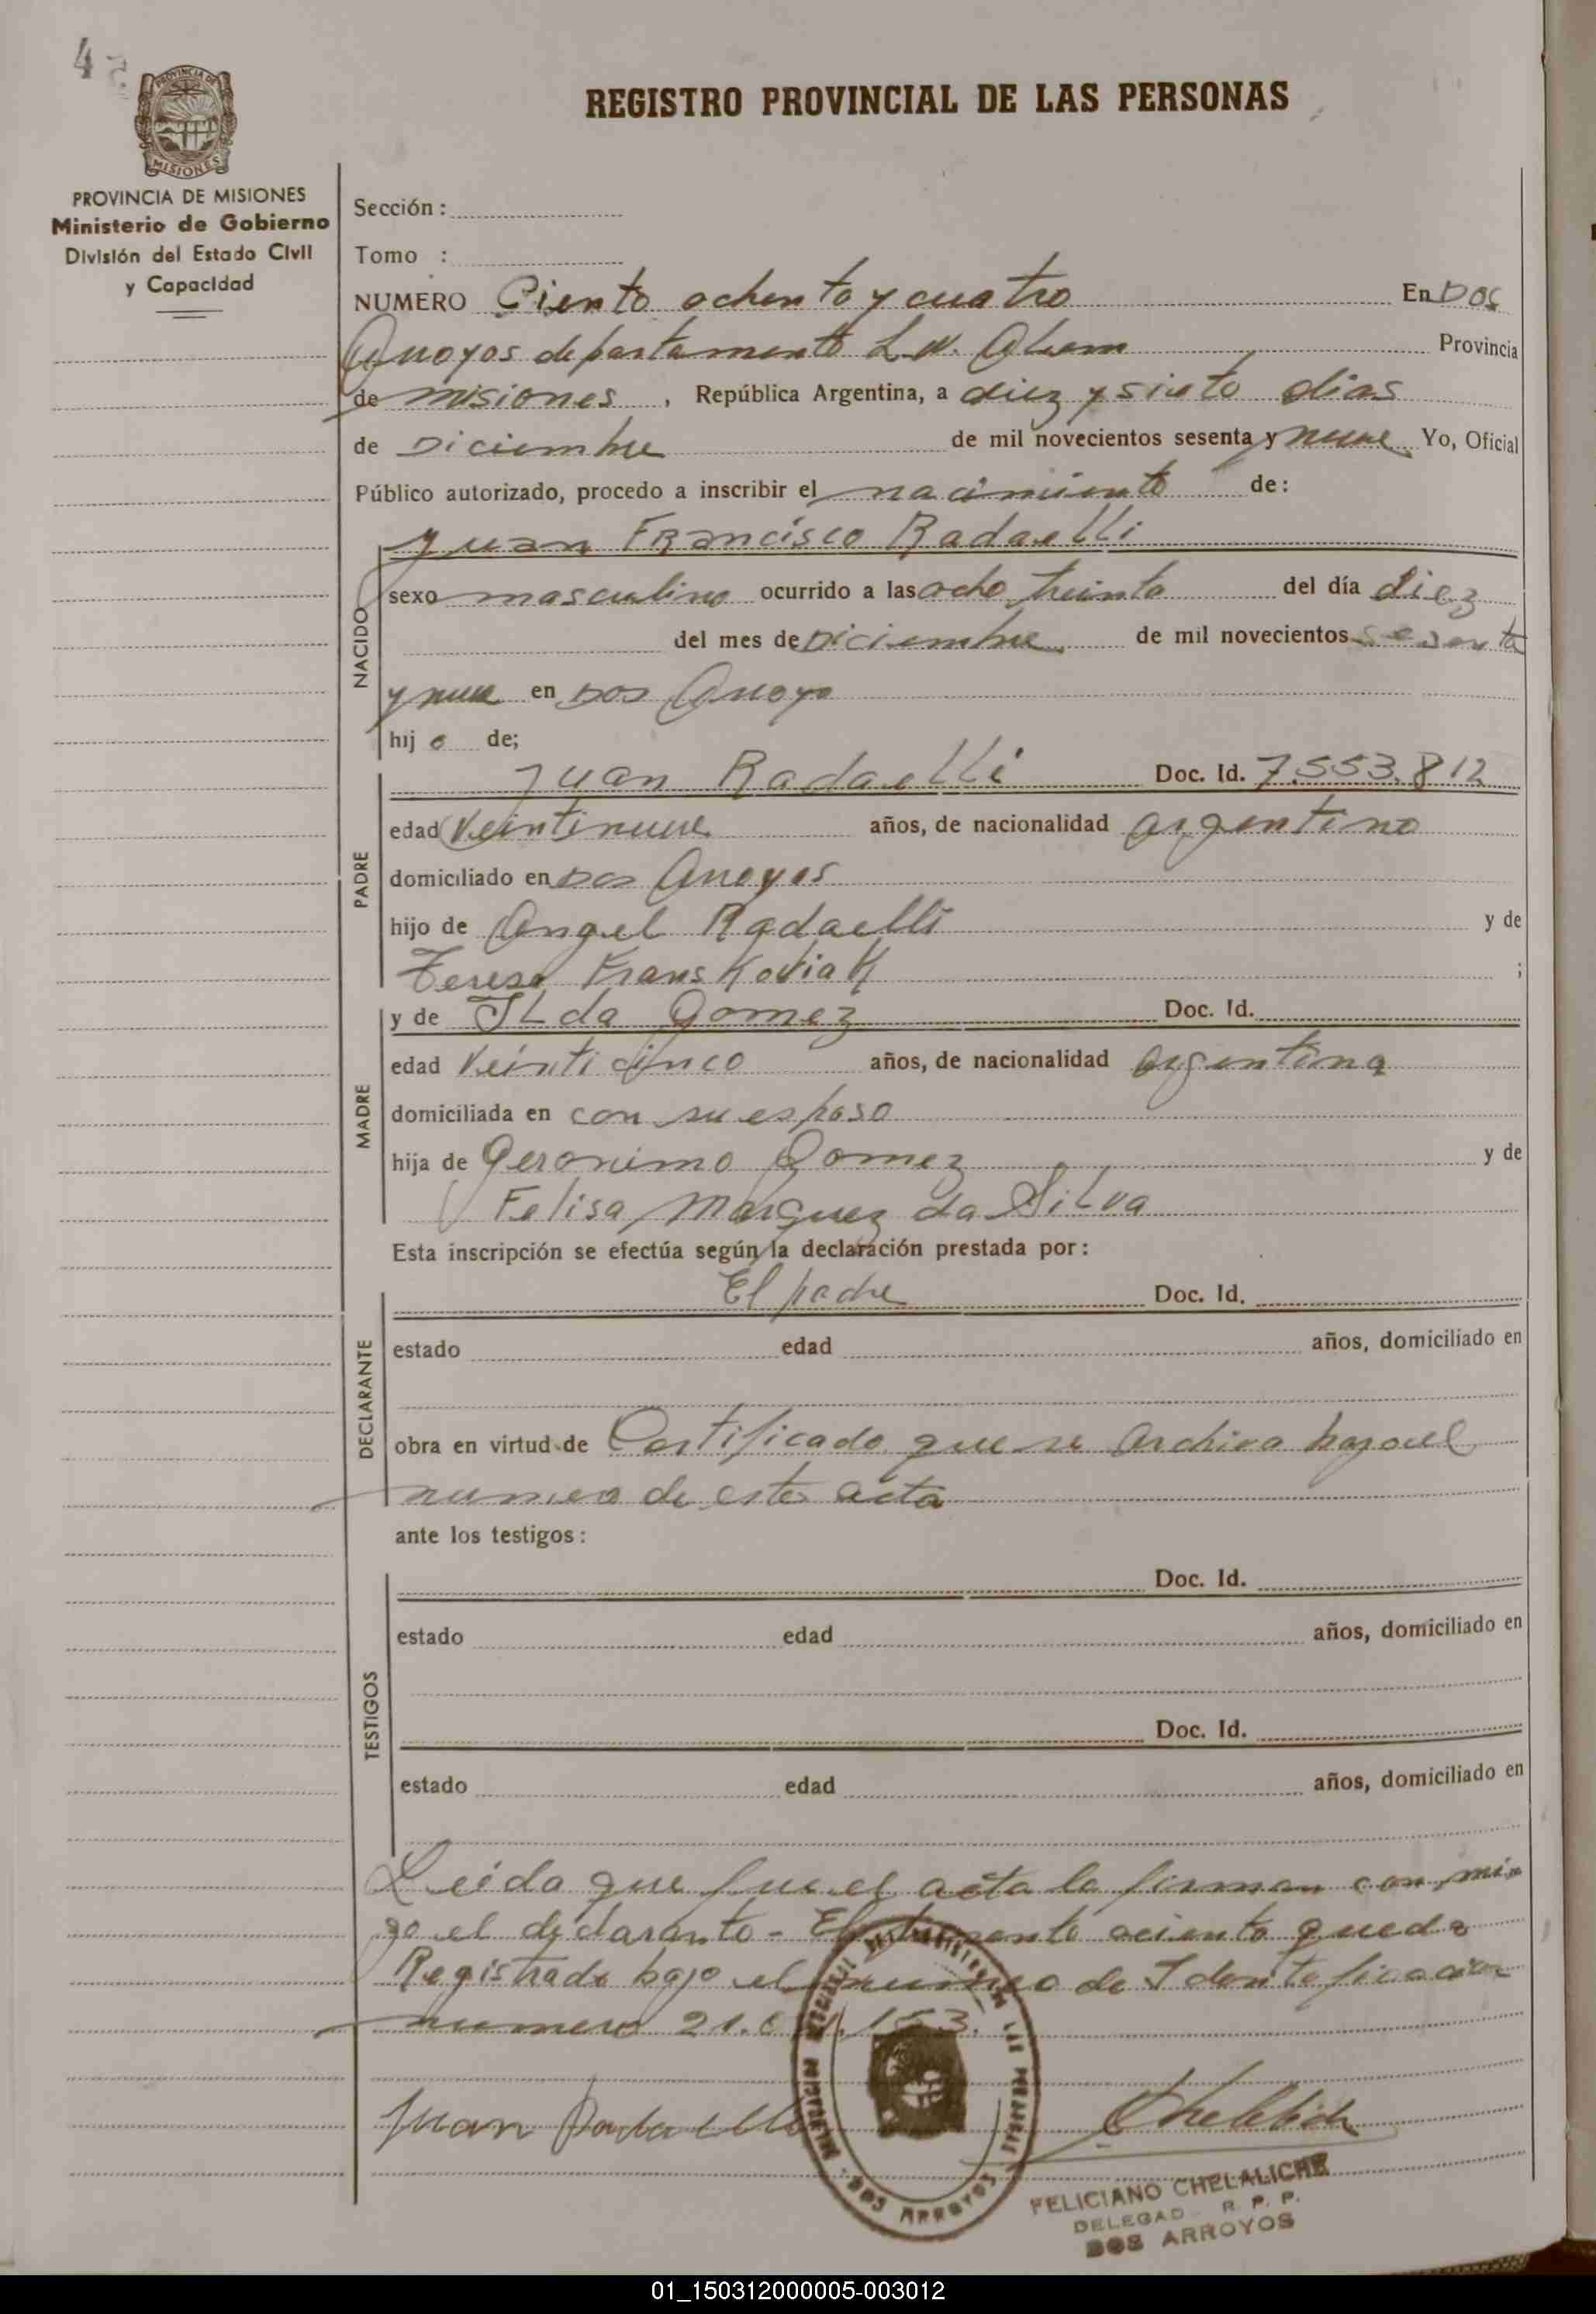 4
REGISTRO PROVINCIAL DE LAS PERSONAS
PROVINCIA DE
MISIONES
PROVINCIA DE MISIONES
Ministerio de Gobierno
División del Estado Civil
y Capacidad
Sección :
Tomo :
NUMERO Ciento ochenta y cuatro En Dos
Arroyos departamento L.N. Alem Provincia
de misiones , República Argentina, a diez y siete dias
de Diciembre de mil novecientos sesenta y nueve Yo, Oficial
Público autorizado, procedo a inscribir el nacimiento de:
NACIDO
Juan Francisco Radaelli
sexo masculino ocurrido a las ocho treinta del día diez
del mes de Diciembre de mil novecientos sesenta
y nueve en Dos Arroyo
hij o de;
PADRE
Juan Radaelli Doc. Id. 7.553.812
edad Veintinueve años, de nacionalidad argentino
domiciliado en Dos Arroyos
hijo de Angel Radaelli y de
Teresa Franskoviak ;
MADRE
y de ILda Gomez Doc. Id.
edad Veinticinco años, de nacionalidad argentina
domiciliada en con su esposo
hija de Geronimo Gomez y de
Felisa Marquez da Silva
Esta inscripción se efectúa según la declaración prestada por:
DECLARANTE
El padre Doc. Id.
estado edad años, domiciliado en
obra en virtud de Certificado que se archiva bajo el
numero de este acta
ante los testigos :
TESTIGOS
Doc. Id.
estado edad años, domiciliado en
Doc. Id.
estado edad años, domiciliado en
Leida que fue el acta la firman con mi
go el declarante - El presente aciento queda
Registrado bajo el numero de Identificacion
numero 21. 153.
Juan Radaelli
DOS ARROYOS
FELICIANO CHELALICHE
DELEGAD R. P. P.
DOS ARROYOS
01_150312000005-003012